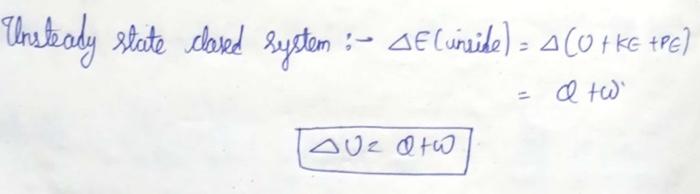 Unsteady state closed system :- ΔE(inside) = Δ(U + KE + PE)
= Q + W
ΔU = Q + W